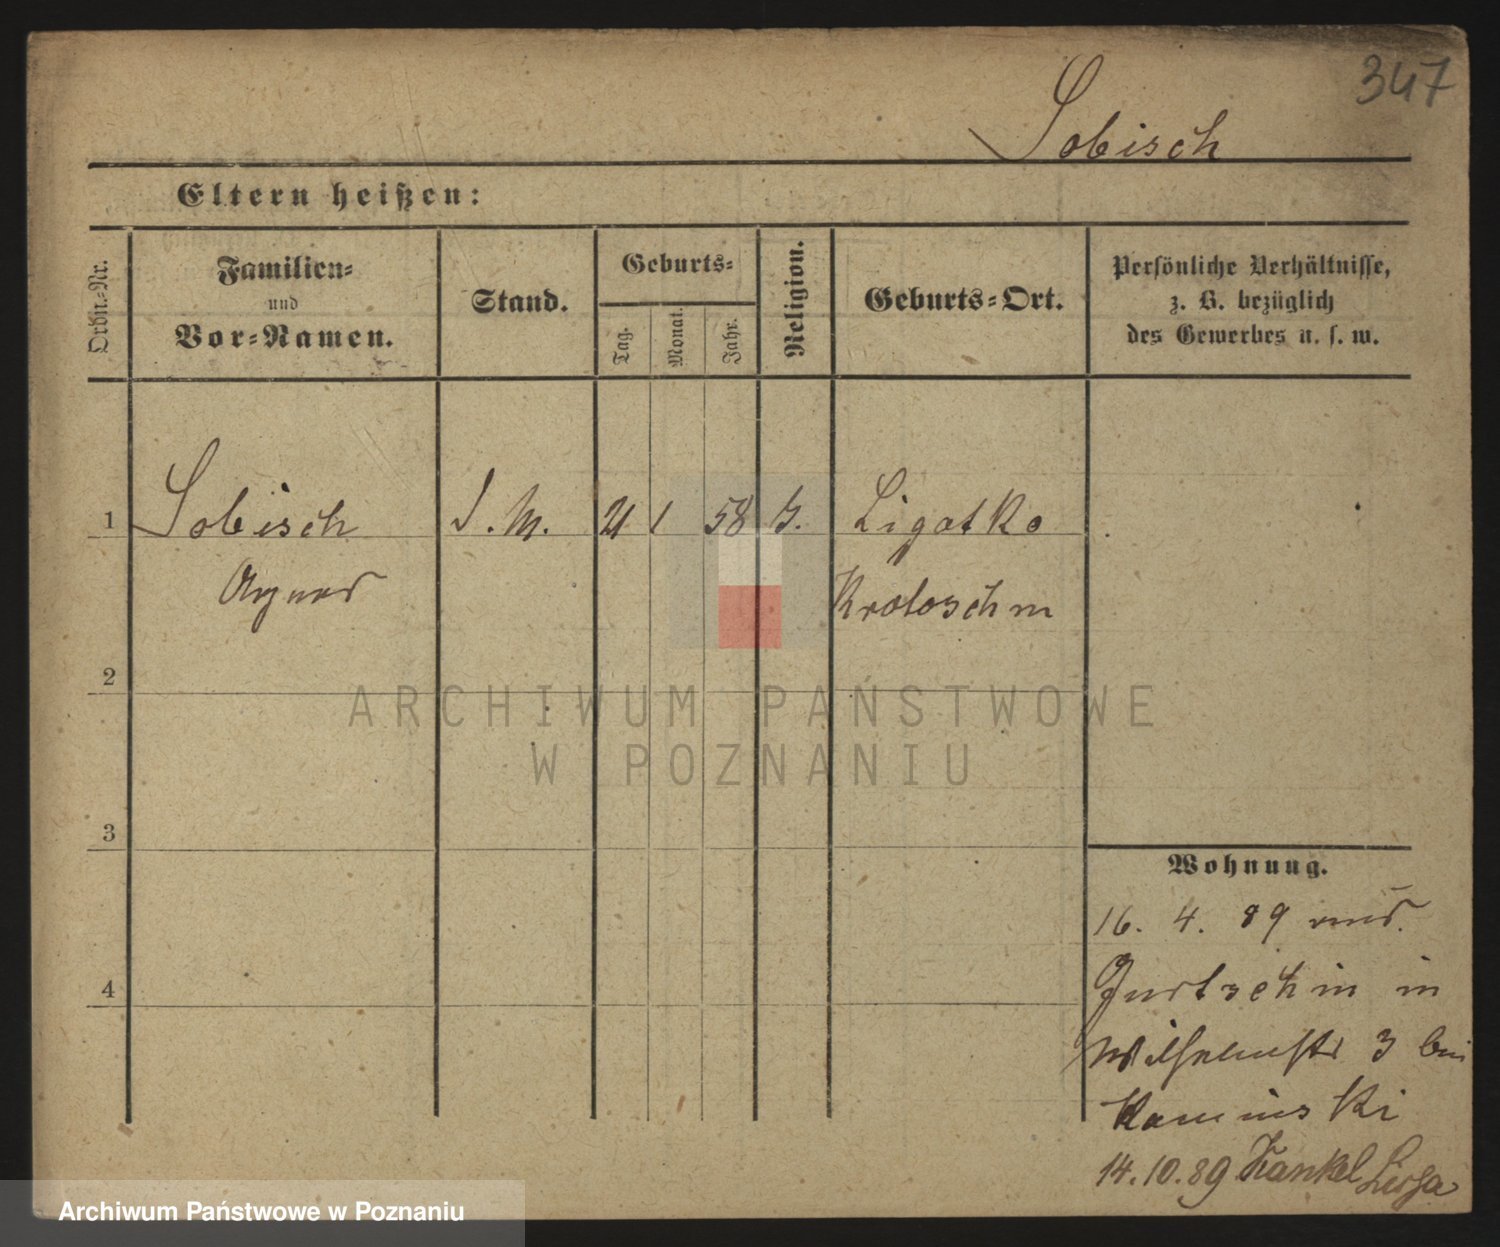 347
Sobisch
Eltern heißen:
Ordin.-Nr.
Familien-
und
Vor-Namen.
Stand.
Geburts-
Tag.
Monat.
Jahr.
Religion.
Geburts-Ort.
Persönliche Verhältnisse,
z. B. bezüglich
des Gewerbes u. s. w.
1 Sobisch D. M. 21 1 58 Ligotko
Agnes Krotoschin
2
3
4
ARCHIWUM PAŃSTWOWE
W POZNANIU
Wohnung.
16. 4. 89 aus
Jurtschin in
Wilhelmstr 3 bei
Kaminski
14.10.89 Kankel Lissa
Archiwum Państwowe w Poznaniu